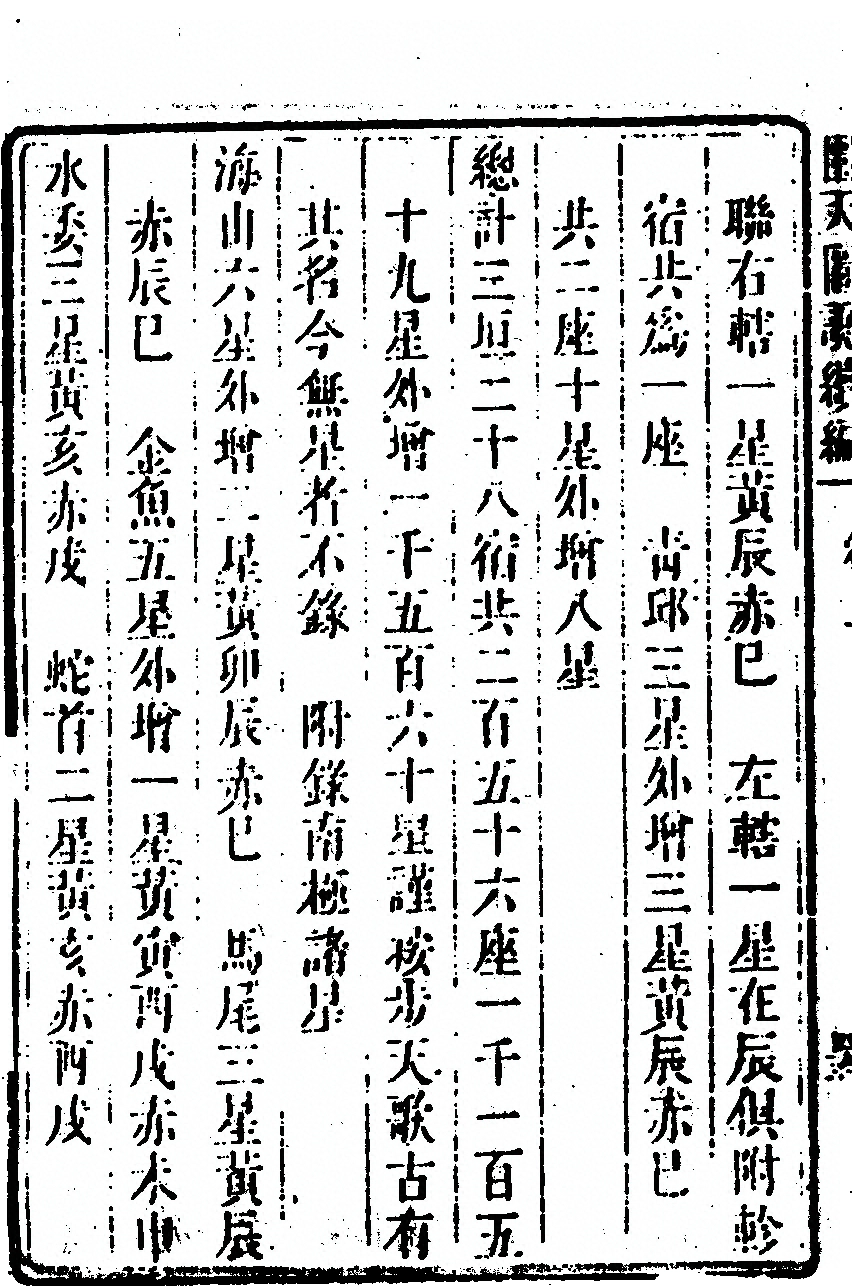 聯右轄一星黃辰赤巳　左轄一星在辰俱附軫
宿共為一座　青邱三星外增三星黃辰赤巳
共二座十星外增八星
總計三垣二十八宿共二百五十六座一千一百五
十九星外增一千五百六十星謹按步天歌古有
其名今無星者不錄　附錄南極諸星
海山六星外增二星黃卯辰赤巳　馬尾三星黃辰
赤辰巳　金魚五星外增一星黃寅酉戌赤未申
水委三星黃亥赤戌　蛇首二星黃亥赤酉戌